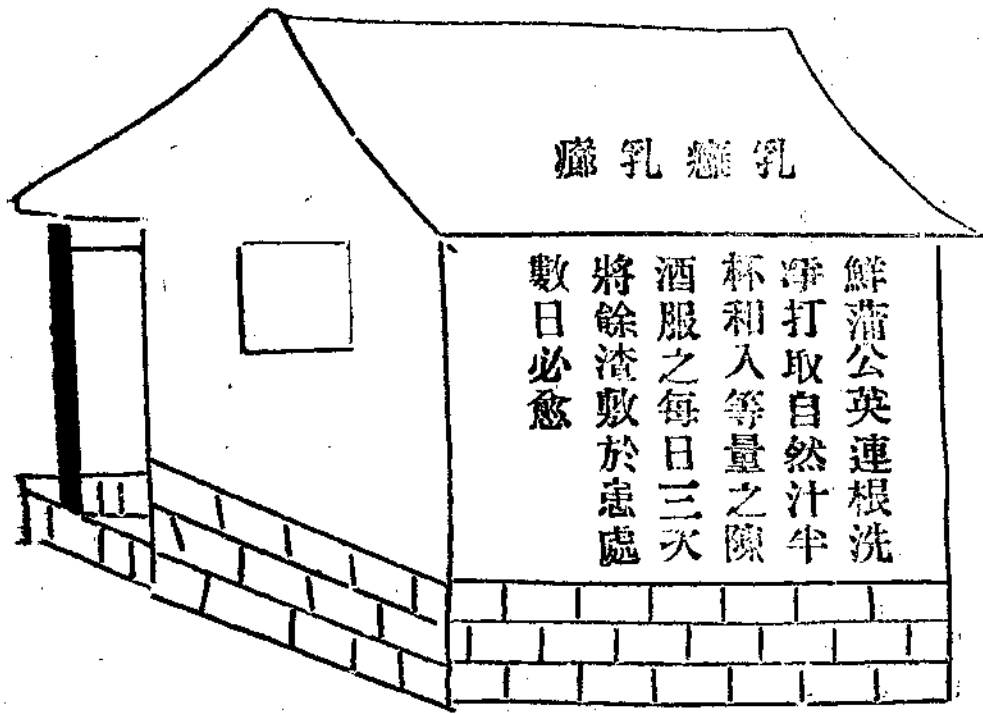 乳癰乳癤
鮮蒲公英連根洗
淨打取自然汁半
杯和入等量之陳
酒服之每日三次
將餘渣敷於患處
數日必愈